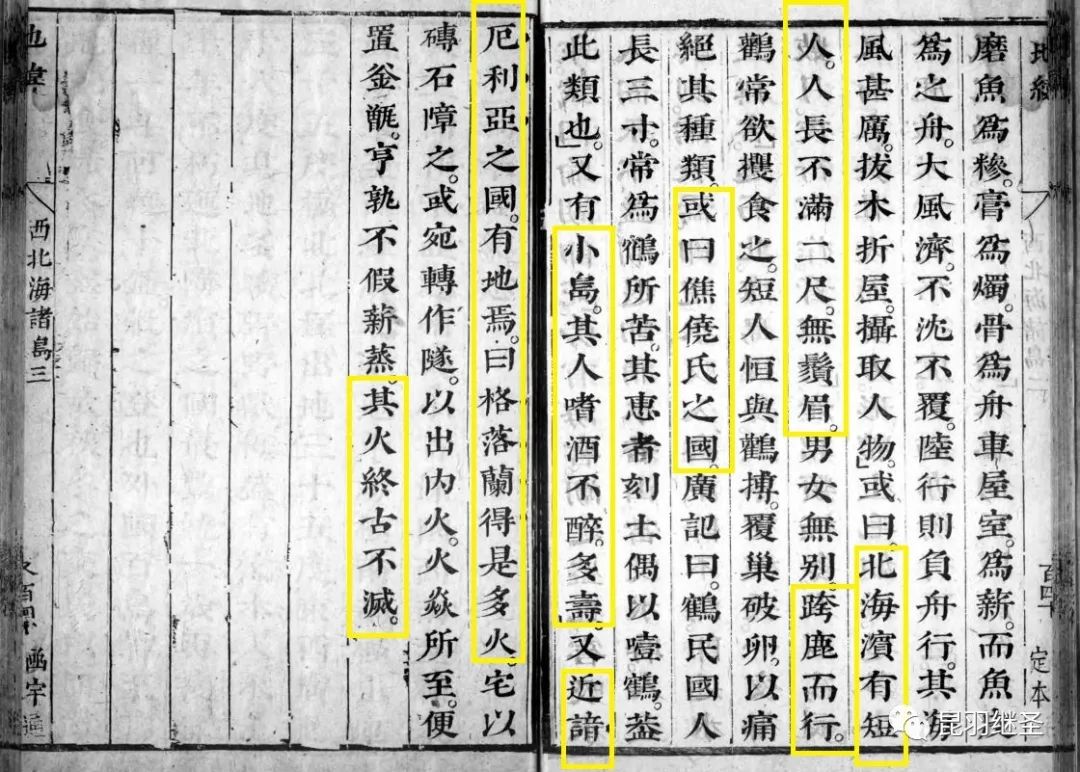 地緯
百四十
定本
磨魚爲糝。膏爲燭。骨爲舟車屋室。爲薪。而魚皮
爲之舟。大風濟。不沈不覆。陸行則負舟行。其海
風甚厲。拔木折屋。攝取人物。或曰。北海濱有短
人。人長不滿二尺。無鬚眉。男女無別。跨鹿而行。
鸛常欲攫食之。短人恒與鸛搏。覆巢破卵。以痛
絕其種類。或曰僬僥氏之國。廣記曰。鶴民國人
長三寸。常爲鶴所苦。其惠者刻土偶以噎鶴。葢
此類也。又有小島。其人嗜酒不醉。多壽。又近諳
厄利亞之國。有地焉。曰格落蘭得。是多火。宅以
磚石障之。或宛轉作隧。以出內火。火焱所至。便
置釜甑。亨孰不假薪蒸。其火終古不滅。
地緯
西北海諸島三
函宇通
昆羽继圣